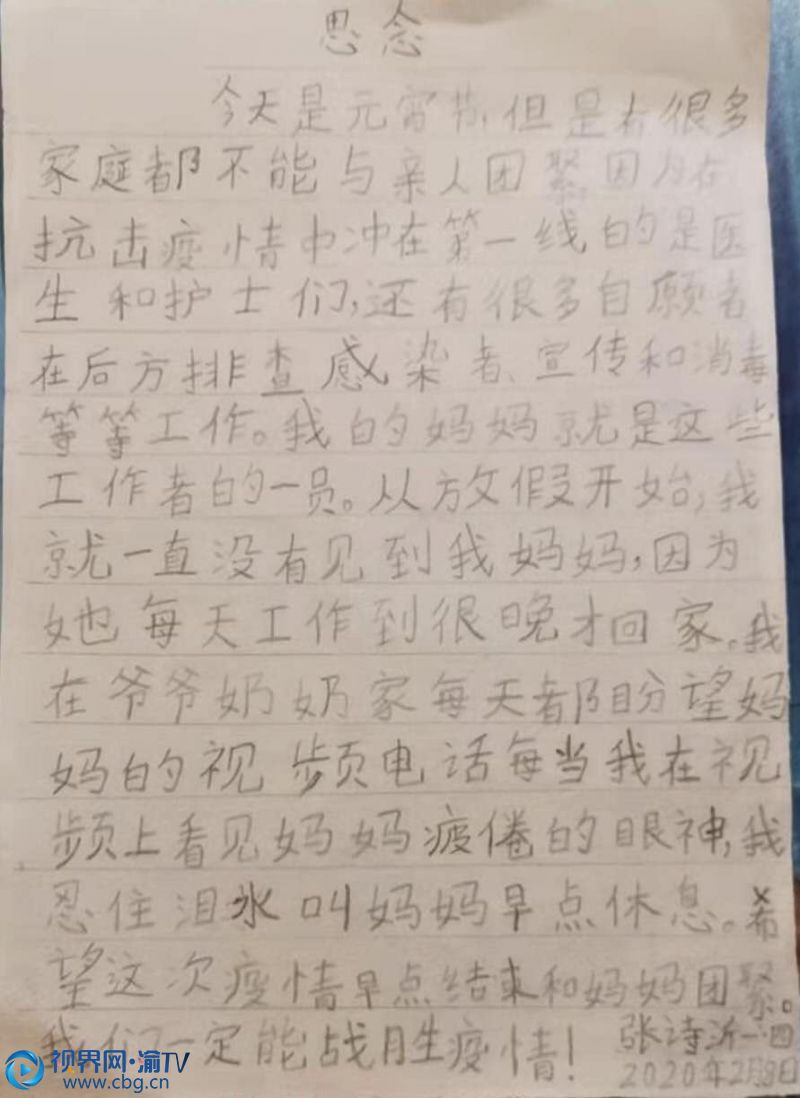 思念
今天是元宵节,但是有很多
家庭都不能与亲人团聚,因为在
抗击疫情中冲在第一线的是医
生和护士们,还有很多自愿者
在后方排查感染者、宣传和消毒
等等工作。我的妈妈就是这些
工作者的一员。从放假开始,我
就一直没有见到我妈妈,因为
她每天工作到很晚才回家。我
在爷爷奶奶家每天都盼望妈
妈的视频电话每当我在视
频上看见妈妈疲倦的眼神,我
忍住泪水叫妈妈早点休息。希
望这次疫情早点结束和妈妈团聚。
我们一定能战胜疫情!
张诗沂一.四
2020年2月8日
视界网·渝TV
www.cbg.cn